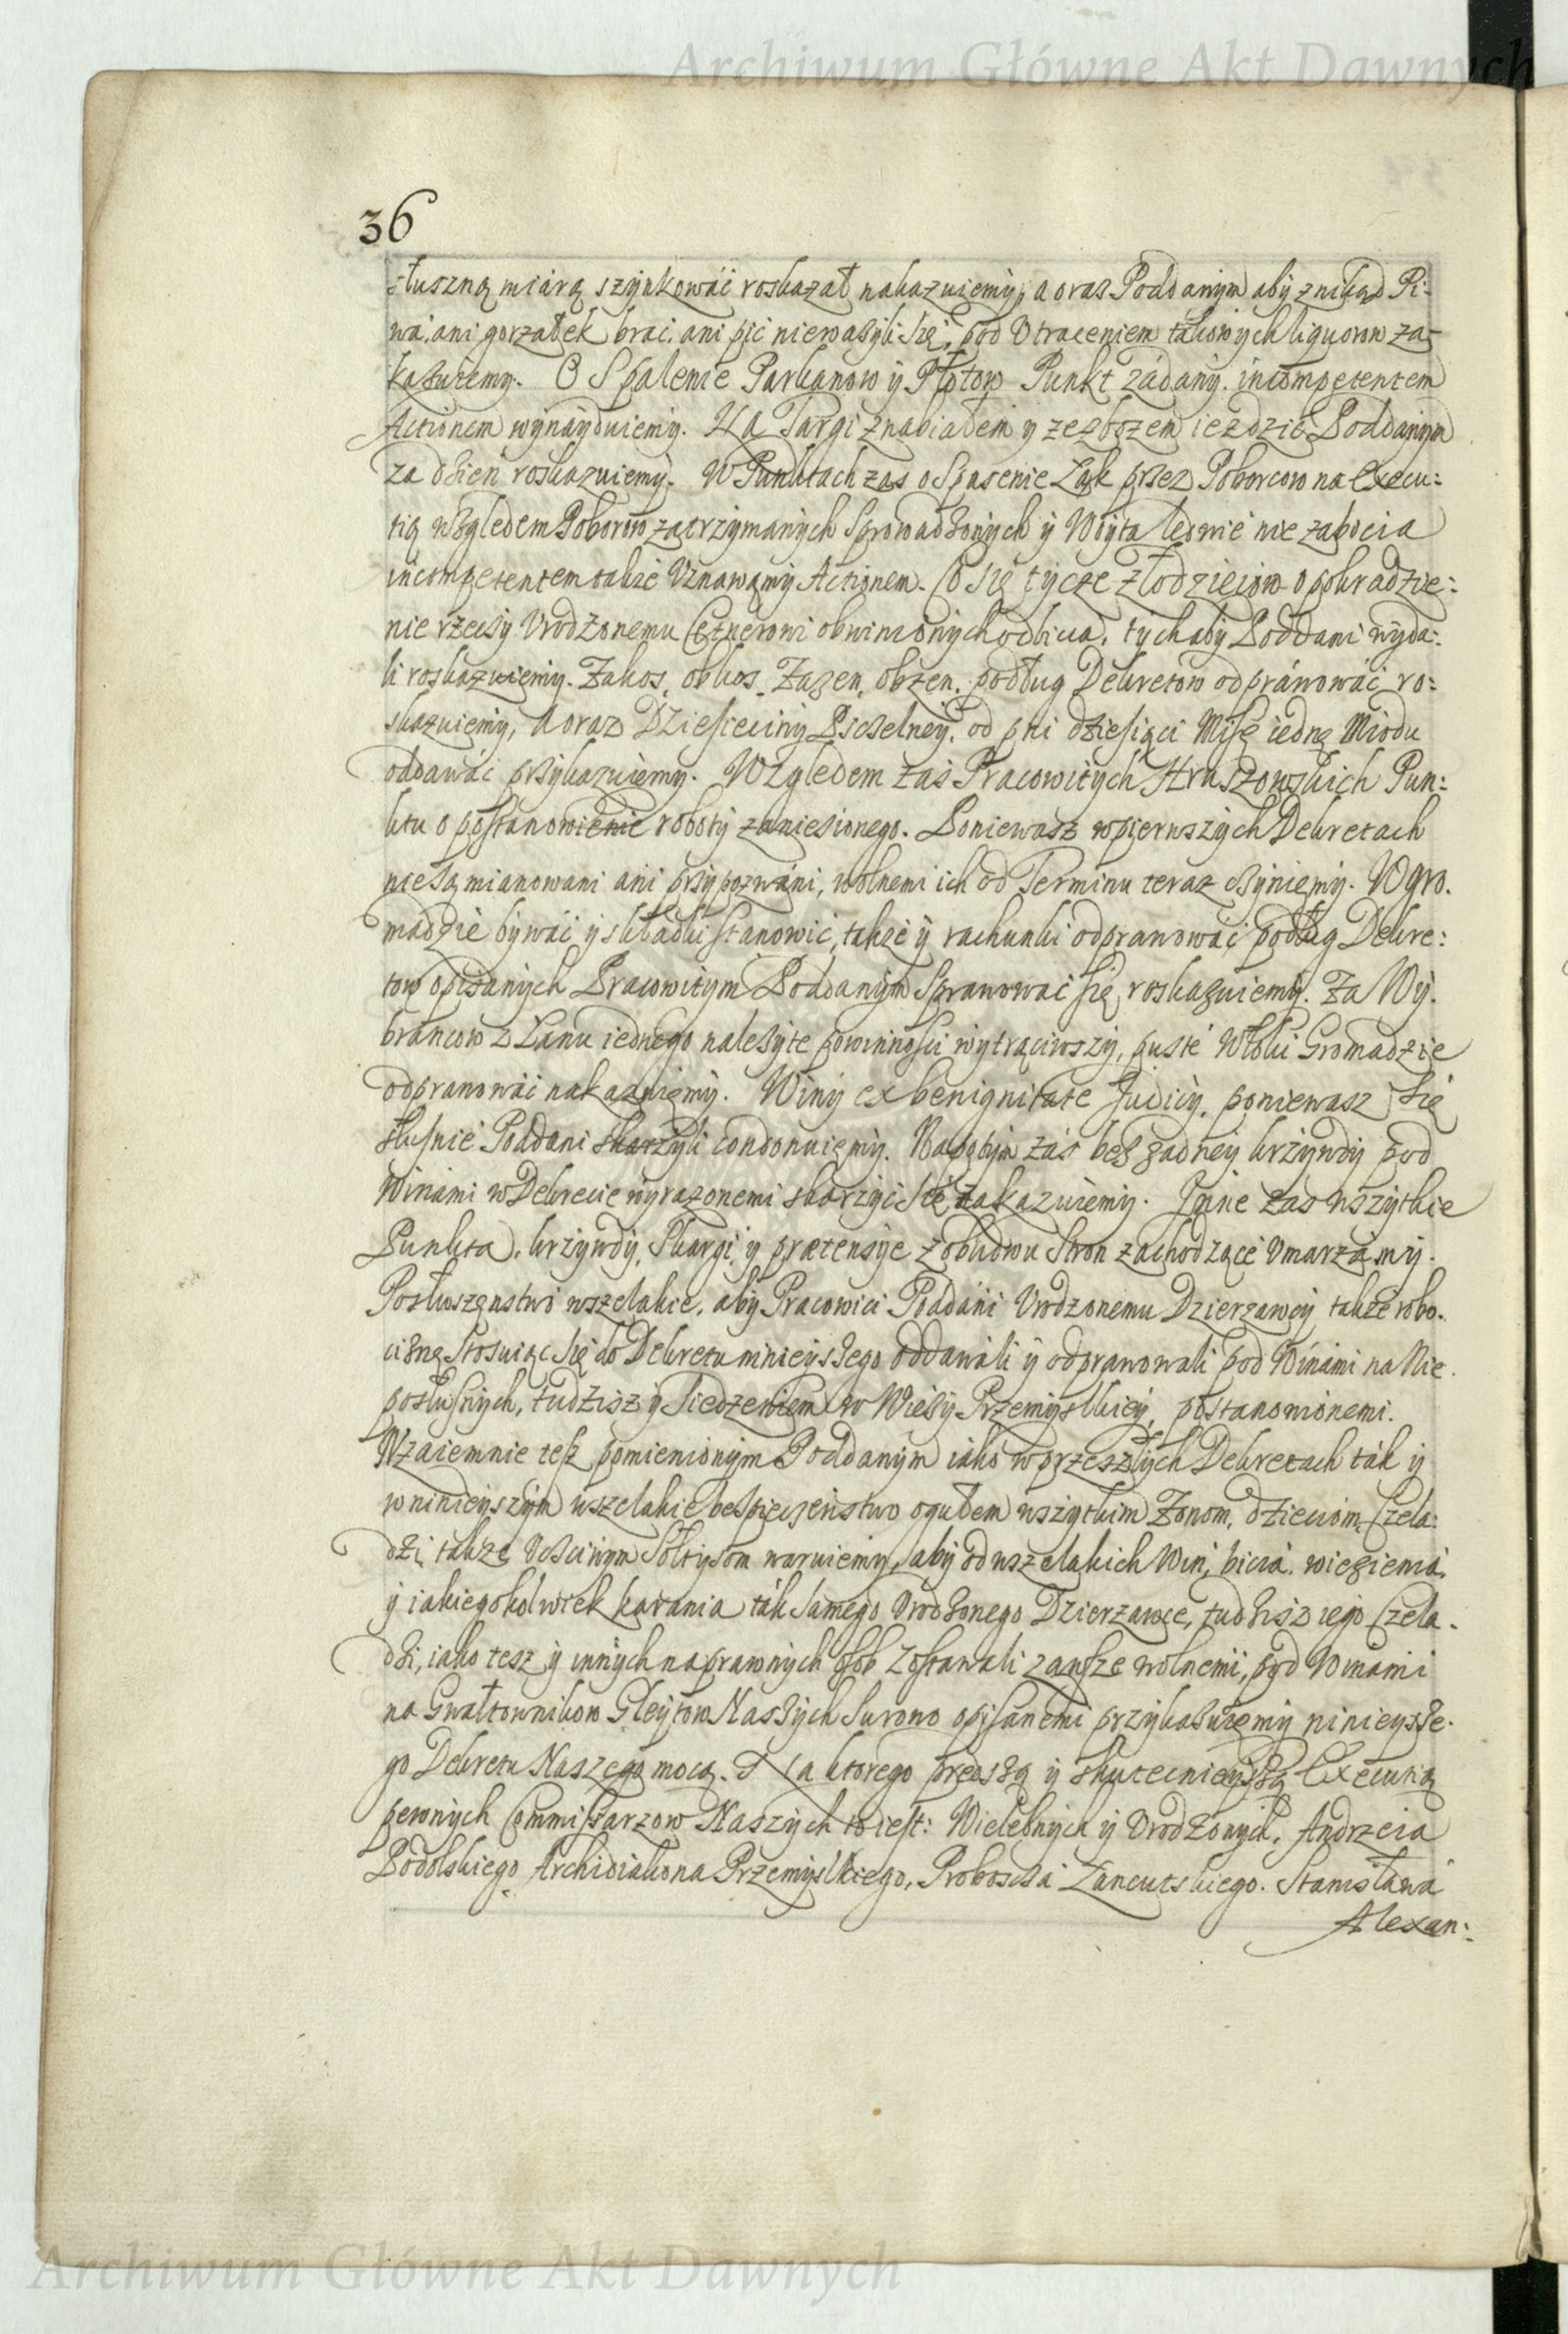 Archiwum Główne Akt Dawnych
36
słuszną miarą szynkować roskazał nakazuiemy, a oras Poddanym aby znikąd Pi:
wa, ani gorzałek brać, ani pić nieważyli się, pod Utraceniem takowych liquorow za-
kazuiemy. O Spalenie Parkanow y Płotow Punkt zádány, incompetentem
Actionem wynayduiemy. Na Targi znabiałem y zezbożem ieździć Poddanym
za dzień roskazuiemy. W Punktach zas o Spasenie Łąk przez Poborcow na Execu:
tią względem Poborow zatrzymanych Sprowadzonych y Woyta ledwie nie zabicia
incompetentem także Uznawamy Actionem. Co się tycze złodzieiow o pokradzie:
nie rzeczy Urodzonemu Cetnerowi obwinionych odbicia, tych aby Poddani wyda:
li roskazuiemy. Zakos, obkos, Zażen, obżen, podług Dekretow odpráwować ro:
skazuiemy, A oraz Dziesieciny Psczelney, od pni dziesiąci Misę iedną Miodu
oddawáć przykazuiemy. Względem záś Pracowitych Hruszowskich Pun:
ktu o postanowienie roboty zaniesionego. Poniewasz wpierwszych Dekretach
niesą mianowani ani przypozwáni, wolnemi ich od Terminu teraz czyniemy. W Gro.
madzie bywáć y składki stanowić, także y rachunki odprawowáć podług Dekre:
tow opisanych Pracowitym Poddanym Sprawować się roskazuiemy. Za Wy.
brancow z Łanu iednego należyte powinności wytrąciwszy, puste Włoki Gromadzie
odprawowáć nakazuiemy. Winy ex benignitate Judicij, poniewasz się
słusnie Poddani skarżyli condonuiemy. Napotym záś bez żadney krzywdy pod
Winami w Dekrecie wyrażonemi skarżyć się zakazuiemy. Inne zas wszytkie
Punkta, krzywdy, Skargi, y prætensye z obudwu Stron zachodzące Umarzamy.
Posłuszenstwo wszelakie, aby Pracowici Poddani Urodzonemu Dzierzawcy także robo.
ciznę Stosuiąc się do Dekretu ninieyszego oddawáli y odprawowali pod Winámi na Nie.
posłusnych, tudzisz y Siedzeniem w Wieży Przemyslkiey, postanowionemi.
Wzaiemnie tesz pomienionym Poddanym iako w przeszłych Dekretach ták y
w ninieyszym wszelakie bespieczeństwo ogułem wszytkim Zonom, dzieciom, Czela:
dzi także Uścinym Sołtysom waruiemy, aby od wszelakich Win, bicia, wiezienia,
y iakiegokolwiek karania ták Samego Urodzonego Dzierzawce, tudzisz iego Czela.
dzi, iako tesz y innych naprawnych osob zostawali zawsze wolnemi, pod Winami
na Gwałtownikow Gleytow Naszych Surowo opisanemi przykazuiemy ninieysze.
go Dekretu Naszego mocą. Na ktorego prędszą y skutecznieyszą Execucią
pewnych Commissarzow Naszych to iest: Wielebnych y Urodzonych, Andrzeia
Podolskiego Archidiakona Przemyslkiego, Proboscza Łancutskiego. Stanisławá
Alexan:
Archiwum Główne Akt Dawnych